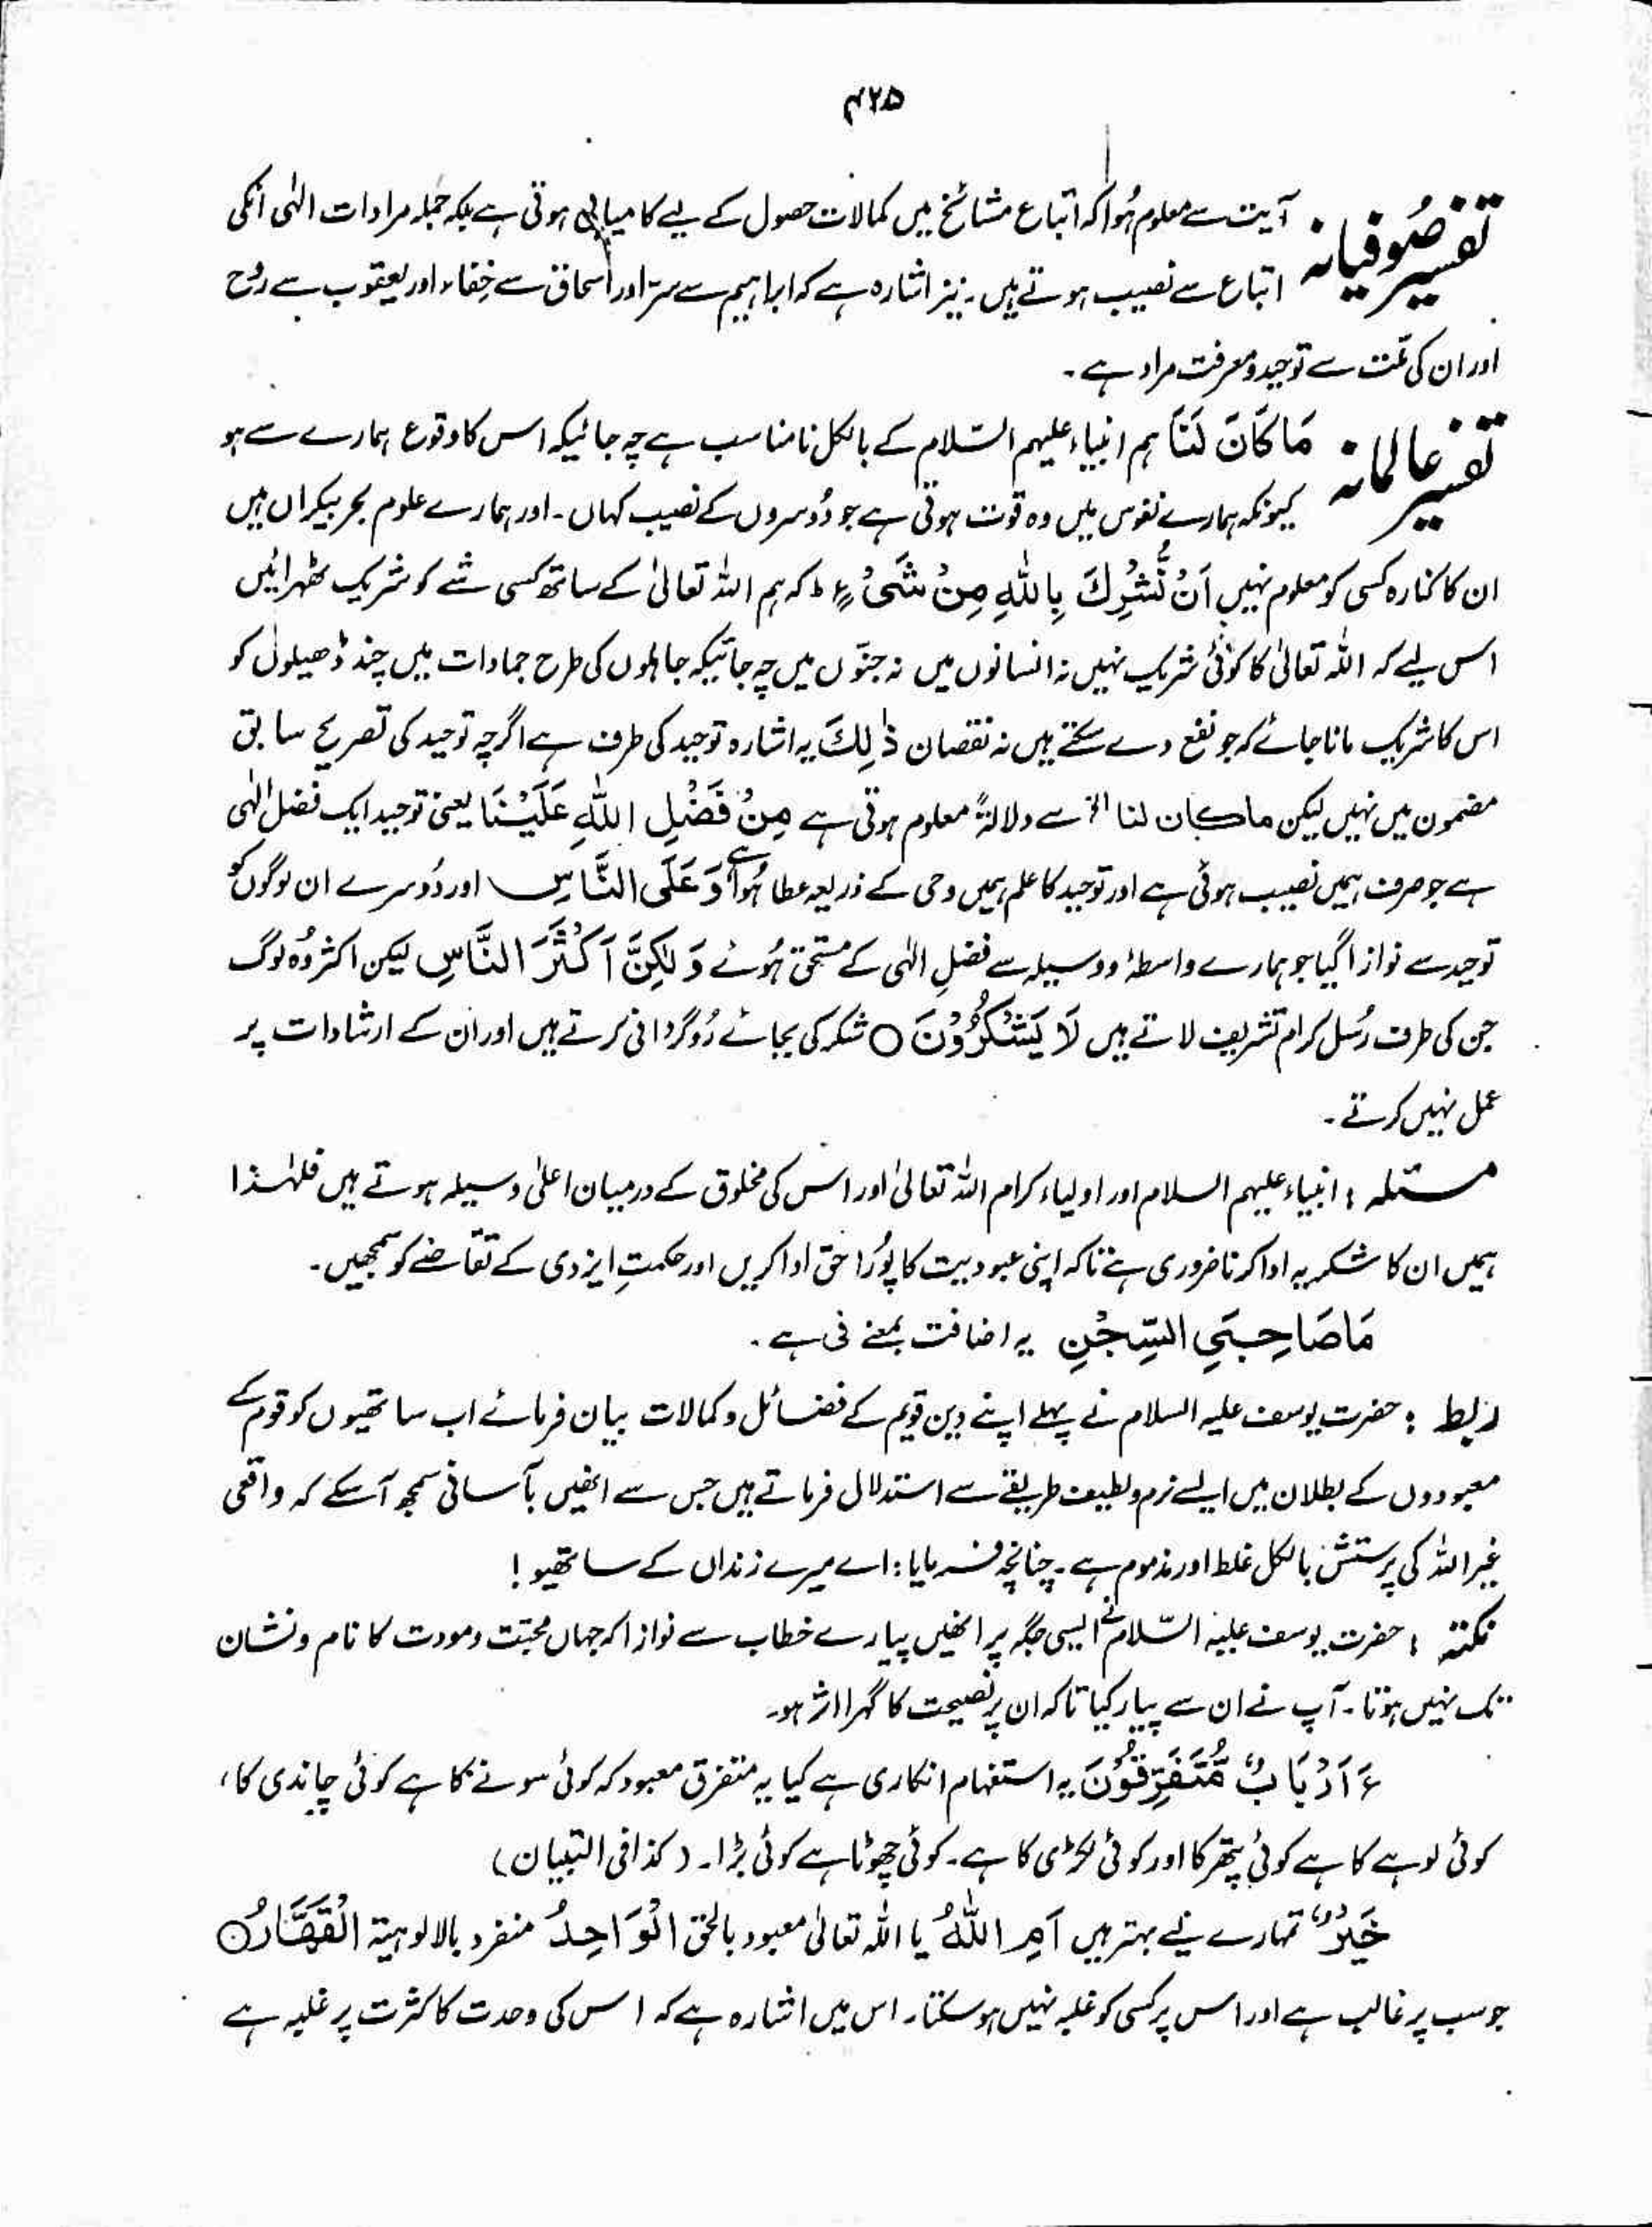 ۴۲۵
تفسیر صُوفیانہ آیت سے معلوم ہُوا کہ اتباع مشائخ میں کمالات حصول کے لیے کامیابی ہوتی ہے بلکہ جُملہ مرادات الٰہی انکی
اتباع سے نصیب ہوتے ہیں۔ نیز اشارہ ہے کہ ابراہیم سے سرّ اور اسحاق سے خِفاء اور یعقوب سے رُوح
اور ان کی مِلّت سے توحید و معرفت مراد ہے۔
تفسیر عالمانہ مَا كَانَ لَنَا ہم انبیاء علیہم السّلام کے بالکل نامناسب ہے چہ جائیکہ اس کا وقوع ہمارے سے ہو
کیونکہ ہمارے نفوس میں وہ قوت ہوتی ہے جو دُوسروں کے نصیب کہاں۔ اور ہمارے علوم بحر بیکراں ہیں
ان کا کنارہ کسی کو معلوم نہیں اَنْ نُّشْرِكَ بِاللّٰهِ مِنْ شَیْءٍ ؕ کہ ہم اللہ تعالیٰ کے ساتھ کسی شے کو شریک ٹھہرائیں
اس لیے کہ اللہ تعالیٰ کا کوئی شریک نہیں نہ انسانوں میں نہ جنّوں میں چہ جائیکہ جاہلوں کی طرح جمادات میں چند ڈھیلوں کو
اس کا شریک مانا جائے کہ جو نفع دے سکتے ہیں نہ نقصان ذٰلِكَ یہ اشارہ توحید کی طرف ہے اگرچہ توحید کی تصریح سابق
مضمون میں نہیں لیکن ما کان لنا الخ سے دلالۃً معلوم ہوتی ہے مِنْ فَضْلِ اللّٰهِ عَلَیْنَا یعنی توحید ایک فضل الٰہی
ہے جو صرف ہمیں نصیب ہوئی ہے اور توحید کا علم ہمیں وحی کے ذریعہ عطا ہُوا ہے وَ عَلَی النَّاسِ اور دُوسرے ان لوگوں کو
توحید سے نوازا گیا جو ہمارے واسطہ و وسیلہ سے فضلِ الٰہی کے مستحق ہُوئے وَ لٰكِنَّ اَكْثَرَ النَّاسِ لیکن اکثر وُہ لوگ
جن کی طرف رُسل کرام تشریف لاتے ہیں لَا یَشْكُرُوْنَ ○ شکر کی بجائے رُوگردانی کرتے ہیں اور ان کے ارشادات پر
عمل نہیں کرتے۔
مسئلہ : انبیاء علیہم السلام اور اولیاء کرام اللہ تعالیٰ اور اس کی مخلوق کے درمیان اعلیٰ وسیلہ ہوتے ہیں فلہٰذا
ہمیں ان کا شکریہ ادا کرنا ضروری ہے تاکہ اپنی عبودیت کا پُورا حق ادا کریں اور حکمتِ ایزدی کے تقاضے کو سمجھیں۔
مَا صَاحِبَیِ السِّجْنِ یہ اضافت بمعنے فی ہے۔
ربط : حضرت یوسف علیہ السلام نے پہلے اپنے دین قویم کے فضائل و کمالات بیان فرمائے اب ساتھیوں کو قوم کے
معبودوں کے بطلان میں ایسے نرم و لطیف طریقے سے استدلال فرماتے ہیں جس سے انھیں بآسانی سمجھ آ سکے کہ واقعی
غیر اللہ کی پرستش بالکل غلط اور مذموم ہے۔ چنانچہ فرمایا : اے میرے زنداں کے ساتھیو !
نکتہ : حضرت یوسف علیہ السّلام نے ایسی جگہ پر انھیں پیارے خطاب سے نوازا کہ جہاں محبّت و مودت کا نام و نشان
تک نہیں ہوتا۔ آپ نے ان سے پیار کیا تاکہ ان پر نصیحت کا گہرا اثر ہو۔
ءَ اَرْبَابٌ مُّتَفَرِّقُوْنَ یہ استفہام انکاری ہے کیا یہ متفرق معبود کہ کوئی سونے کا ہے کوئی چاندی کا،
کوئی لوہے کا ہے کوئی پتھر کا اور کوئی لکڑی کا ہے۔ کوئی چھوٹا ہے کوئی بڑا۔ (کذا فی التبیان)
خَیْرٌ تمہارے لیے بہتر ہیں اَمِ اللّٰهُ یا اللہ تعالیٰ معبود بالحق الْوَاحِدُ منفرد بالالوہیۃ الْقَهَّارُ ○
جو سب پر غالب ہے اور اس پر کسی کو غلبہ نہیں ہو سکتا۔ اس میں اشارہ ہے کہ اس کی وحدت کا کثرت پر غلبہ ہے